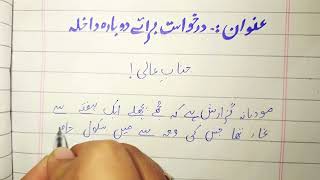 عنوان :- درخواست برائے دوبارہ داخلہ
جناب عالی !
مودبانہ گزارش ہے کہ مجھے پچھلے ایک ہفتے سے
بخار تھا جس کی وجہ سے میں سکول